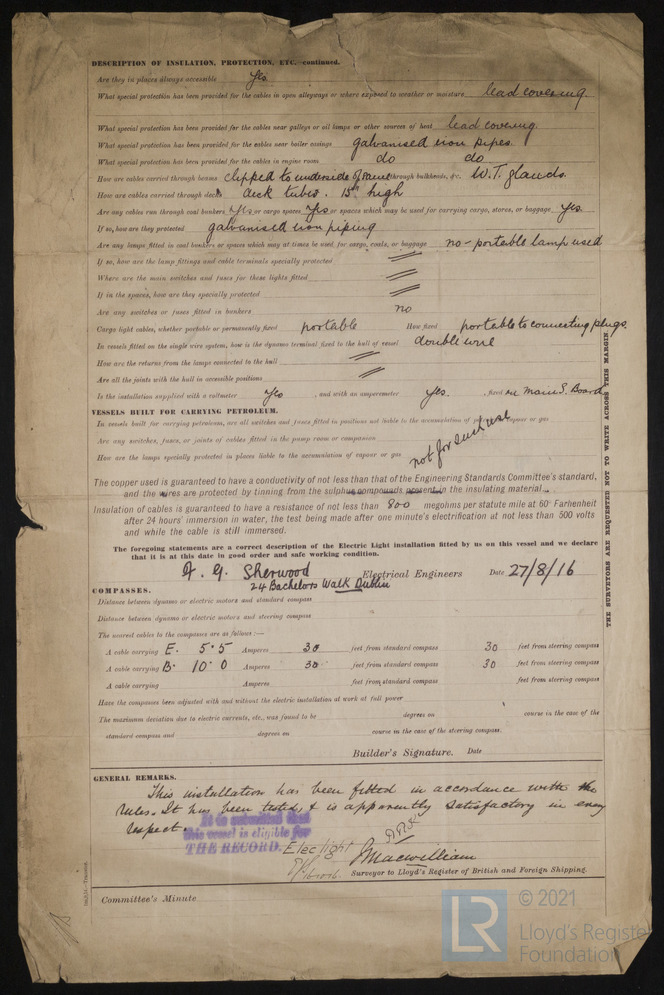 DESCRIPTION OF INSULATION, PROTECTION, ETC.—continued.
Are they in places always accessible Yes
What special protection has been provided for the cables in open alleyways or where exposed to weather or moisture lead covering.
What special protection has been provided for the cables near galleys or oil lamps or other sources of heat lead covering.
What special protection has been provided for the cables near boiler casings galvanised iron pipes.
What special protection has been provided for the cables in engine room do do
How are cables carried through beams clipped to underside of through bulkheads, &c. W.T. glands.
How are cables carried through decks deck tubes. 15" high
Are any cables run through coal bunkers Yes or cargo spaces Yes or spaces which may be used for carrying cargo, stores, or baggage Yes.
If so, how are they protected galvanised iron piping
Are any lamps fitted in coal bunkers or spaces which may at times be used for cargo, coals, or baggage no - portable lamp used
If so, how are the lamp fittings and cable terminals specially protected
Where are the main switches and fuses for these lights fitted
If in the spaces, how are they specially protected
Are any switches or fuses fitted in bunkers no
Cargo light cables, whether portable or permanently fixed portable How fixed portable to connecting plugs.
In vessels fitted on the single wire system, how is the dynamo terminal fixed to the hull of vessel double wire
How are the returns from the lamps connected to the hull
Are all the joints with the hull in accessible positions
Is the installation supplied with a voltmeter Yes , and with an amperemeter Yes. , fixed on Main S. Board
VESSELS BUILT FOR CARRYING PETROLEUM.
In vessels built for carrying petroleum, are all switches and fuses fitted in positions not liable to the accumulation of petroleum vapour or gas
Are any switches, fuses, or joints of cables fitted in the pump room or companion
How are the lamps specially protected in places liable to the accumulation of vapour or gas not for such use
The copper used is guaranteed to have a conductivity of not less than that of the Engineering Standards Committee's standard,
and the wires are protected by tinning from the sulphur compounds present in the insulating material.
Insulation of cables is guaranteed to have a resistance of not less than 800 megohms per statute mile at 60° Farhenheit
after 24 hours' immersion in water, the test being made after one minute's electrification at not less than 500 volts
and while the cable is still immersed.
The foregoing statements are a correct description of the Electric Light installation fitted by us on this vessel and we declare
that it is at this date in good order and safe working condition.
G. Sherwood Electrical Engineers Date 27/8/16
24 Bachelors Walk Dublin
COMPASSES.
Distance between dynamo or electric motors and standard compass
Distance between dynamo or electric motors and steering compass
The nearest cables to the compasses are as follows:—
A cable carrying E. 5·5 Amperes 30 feet from standard compass 30 feet from steering compass
A cable carrying B. 10·0 Amperes 30 feet from standard compass 30 feet from steering compass
A cable carrying Amperes feet from standard compass feet from steering compass
Have the compasses been adjusted with and without the electric installation at work at full power
The maximum deviation due to electric currents, etc., was found to be degrees on course in the case of the
standard compass and degrees on course in the case of the steering compass.
Builder's Signature. Date
GENERAL REMARKS.
This installation has been fitted in accordance with the
rules. It has been tested, & is apparently satisfactory in every
respect.
It is submitted that
this vessel is eligible for
THE RECORD. Elec light
J Macwilliam
Surveyor to Lloyd's Register of British and Foreign Shipping.
Committee's Minute
THE SURVEYORS ARE REQUESTED NOT TO WRITE ACROSS THIS MARGIN.
LR
© 2021
Lloyd's Registe
Foundation